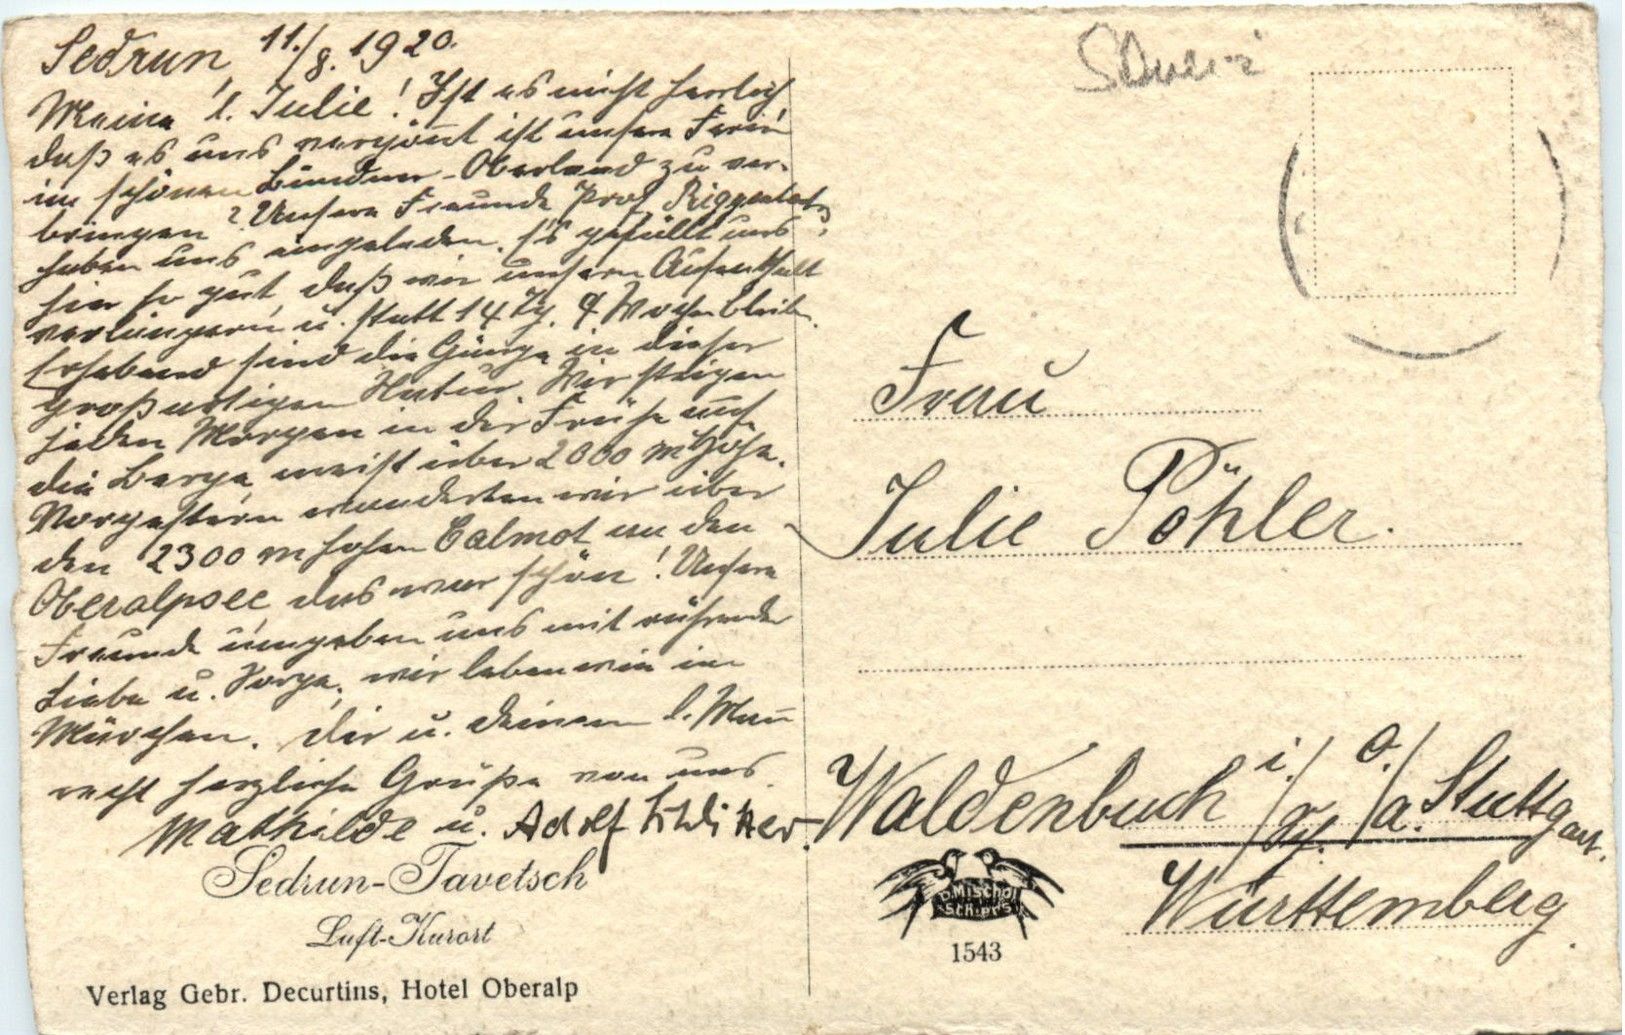 Sedrun, 11./8. 1920.
Meine l. Julie! Ist es nicht herrlich
daß es uns vergönt ist unsere Ferien
im schönen Bündner-Oberland zu ver-
bringen? Unsere Freunde Prof.
haben uns eingeladen. Es gefällt uns
hier so gut, daß wir unsern Aufenthalt
verlängern u. statt 14 Tg. 4 Wochen bleiben.
Erhebend sind die Gänge in dieser
großartigen Natur. Wir steigen
jeden Morgen in der Frühe auf
die Berge meist über 2000 m Höhe.
Vorgestern wanderten wir über
den 2300 m hohen Calmot an den
Oberalpsee, das war schön! Unsere
Freunde umgeben uns mit rührender
Liebe u. Sorge, wir leben wie im
Märchen. Dir u. deinem l. Man
recht herzliche Grüße von uns
Mathilde u. Adolf
Sedrun-Tavetsch
Luft-Kurort
Verlag Gebr. Decurtins, Hotel Oberalp
Schweiz
Frau
Julie Pöhler.
Waldenbuch i./ O./a. Stuttgart.
Württemberg.
D. Mischol
Schiers
1543